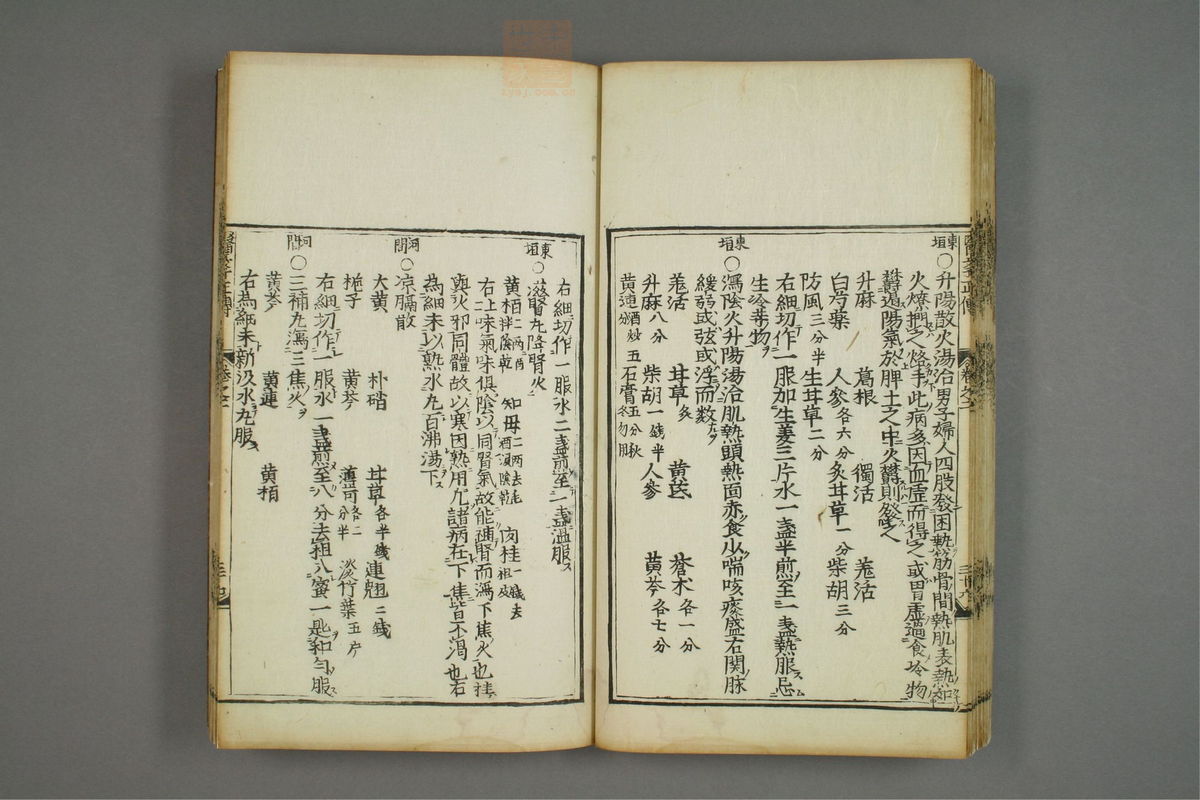 東垣
○升陽散火湯治男子婦人四肢發困熱筋骨間熱肌表熱如
火燎捫之烙手此病多因血虛而得之或胃虛過食冷物
欝遏陽氣於脾土之中火欝則發之
升麻 葛根 獨活 羗活
白芍藥 人參各六分 炙甘草一分 柴胡三分
防風三分半 生甘草二分
右細切作一服加生姜三片水一盞半煎至一盞熱服忌
生冷等物
東垣
○瀉陰火升陽湯治肌熱頭熱面赤食少喘咳痰盛右関脉
緩弱或弦或浮而数
羗活 甘草炙 黄芪 蒼朮各一分
升麻八分 柴胡一錢半 人參 黄芩各七分
黄連酒炒五分 石膏五分秋冬勿用
右細切作一服水二盞煎至一盞温服
東垣
○滋腎丸降腎火
黄栢二兩 知母二兩去毛酒浸陰乾 肉桂一錢去粗皮
右上味氣味俱陰以同腎氣故能補腎而瀉下焦火也桂
與火邪同體故以寒因熱用凡諸病在下焦皆不渇也右
為細末以熟水丸百沸湯下
河間
○凉膈散
大黄 朴硝 甘草各半錢 連翹二錢
梔子 黄芩 薄苛各二分半 淡竹葉五片
右細切作一服水一盞煎至八分去粗入蜜一匙和勻服
河間
○三補丸瀉三焦火
黄芩 黄連 黄栢
右為細末新汲水丸服